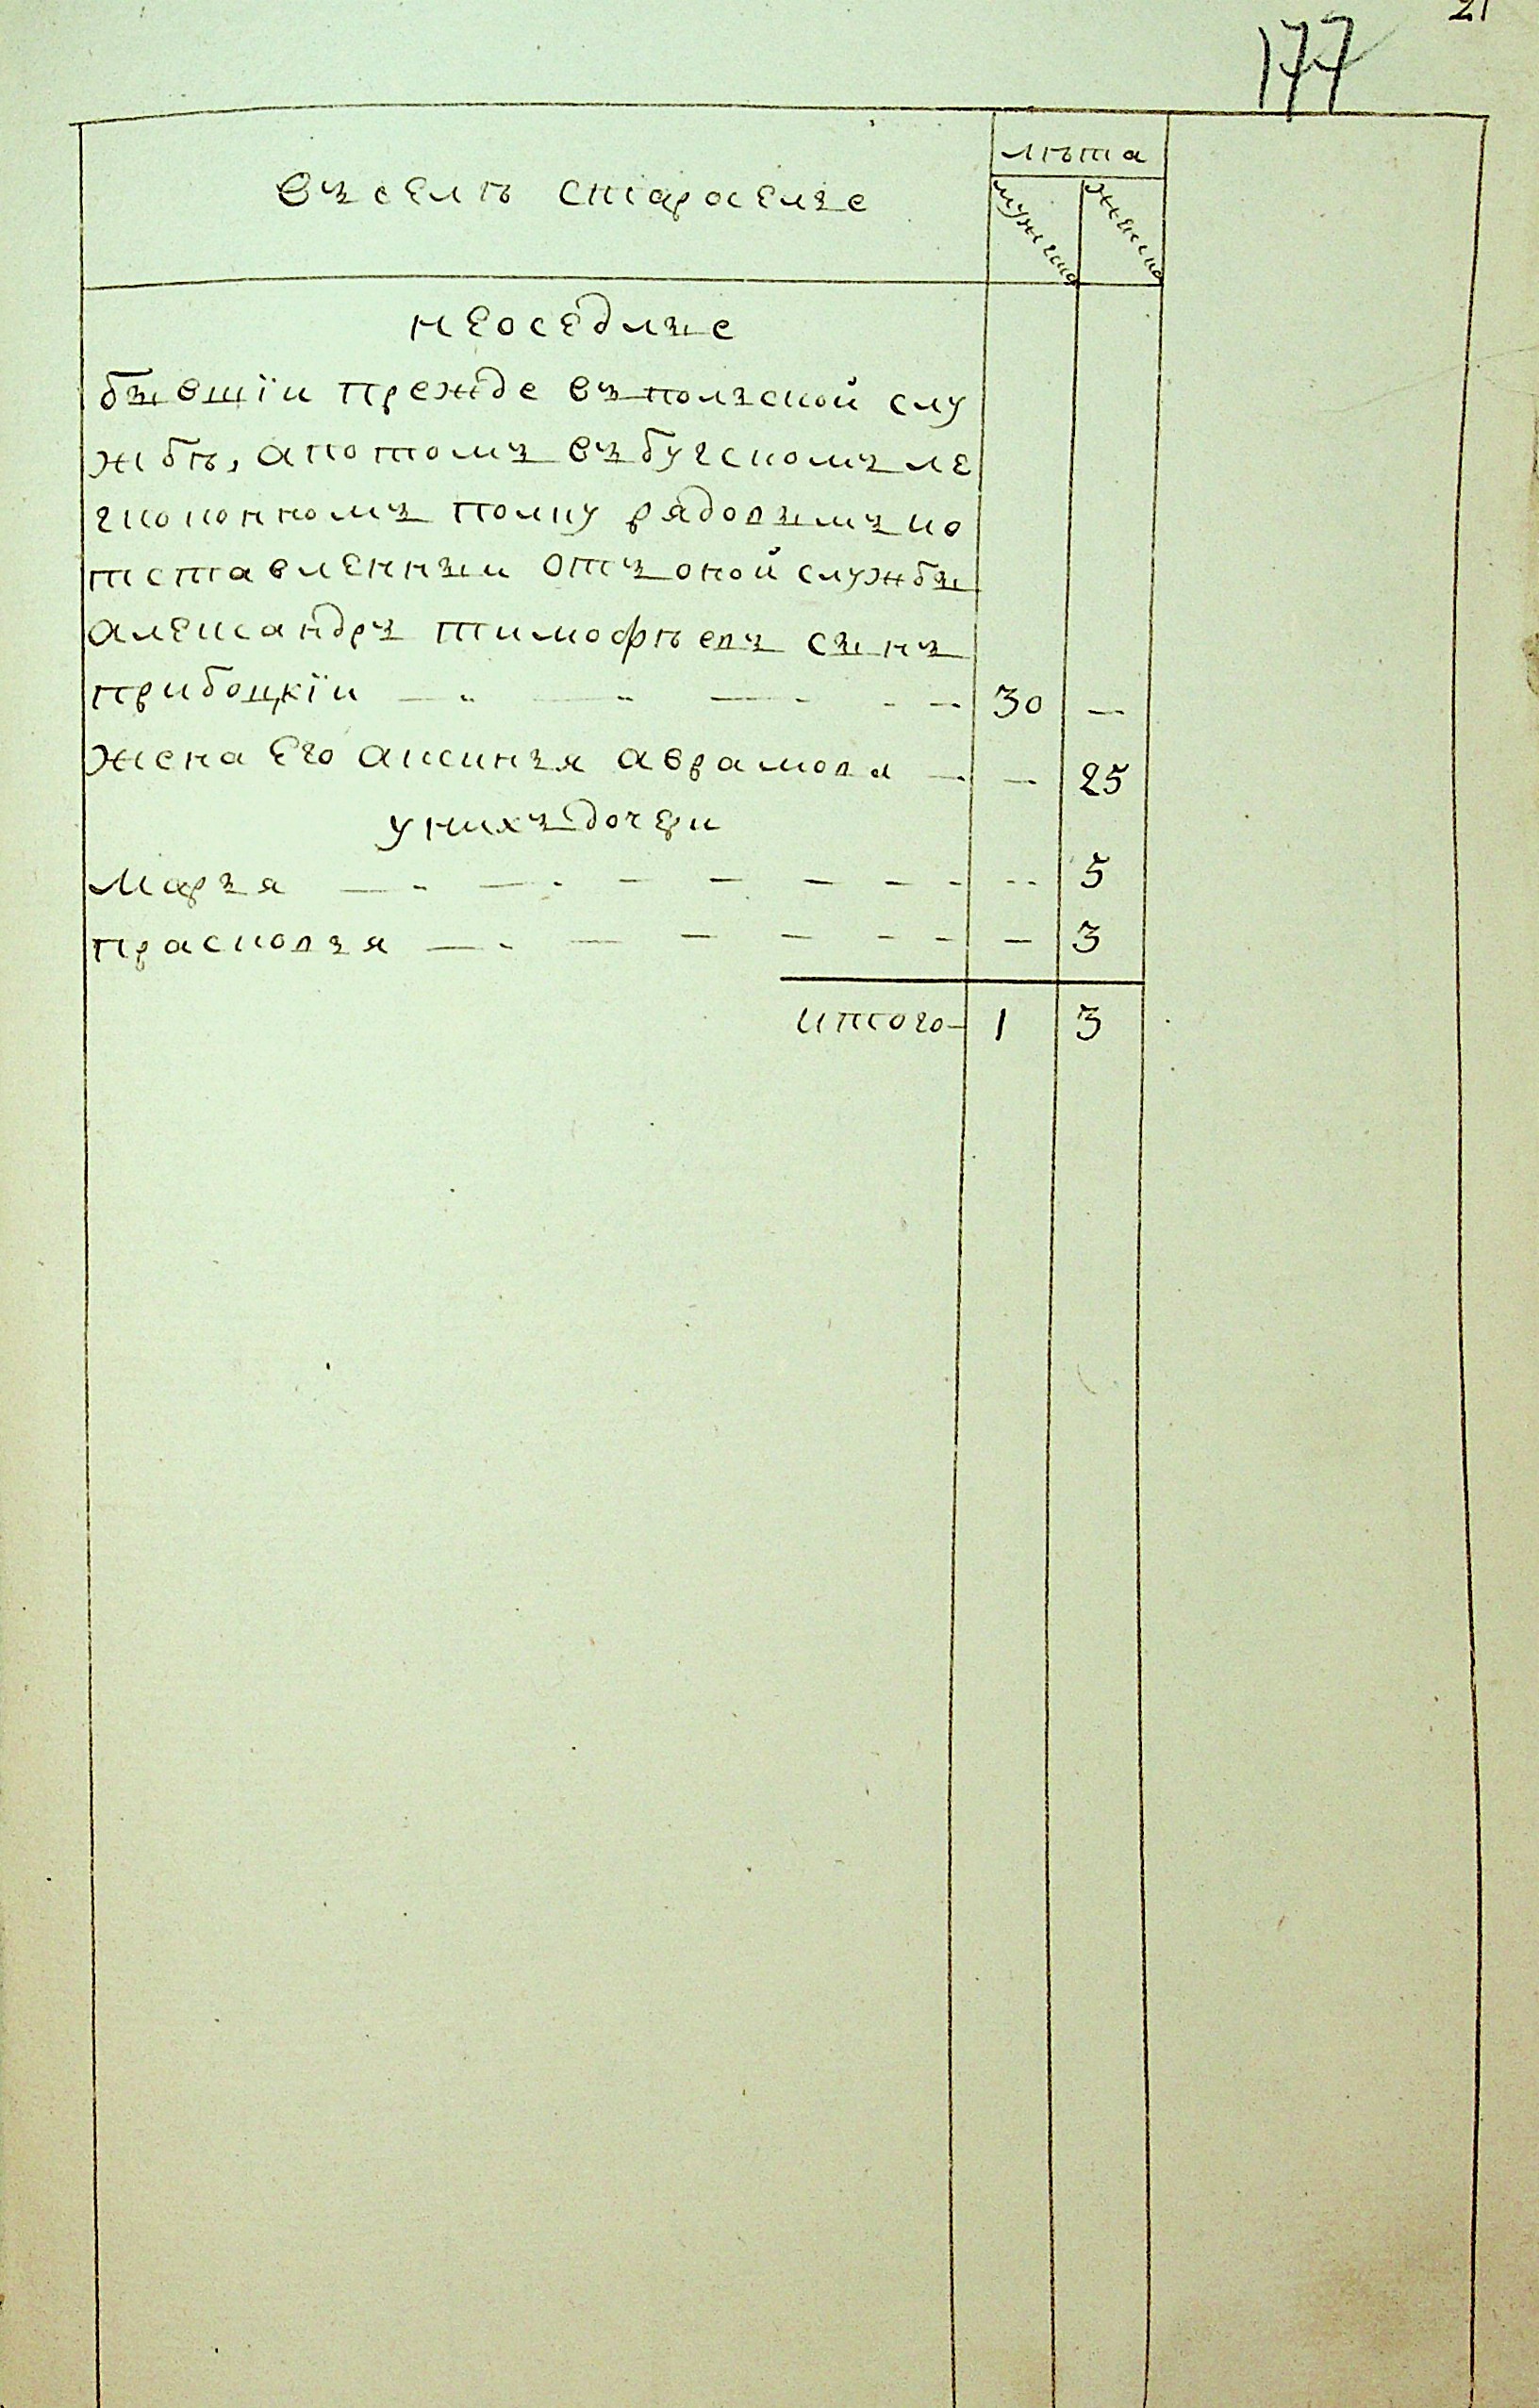 21
177
въ селѣ староселье
лѣта
мужеска
женска
неоседлые
бывшіи прежде въ полской слу
жбѣ, а потомъ въ бугскомъ ле
гкоконномъ полку рядовымъ и о
тставленныи отъ оной службы
александръ тимофѣевъ сынъ
прибоцкіи — — — — — 30 —
жена его аксинья аврамова — — 25
у нихъ дочери
Марья — — — — — — — — — 5
прасковья — — — — — — — 3
итого — 1 3